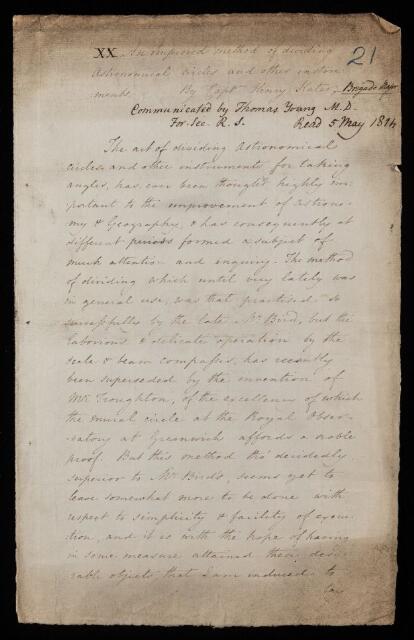 XX. An improved method of dividing 21
Astronomical Circles and other instru-
ments. By Capt. Henry Kater, Brigade Major
Communicated by Thomas Young M.D.
For. Sec. R. S. Read 5 May 1814
The art of dividing Astronomical
circles and other instruments for taking
angles, has ever been thought highly im-
portant to the improvement of astrono-
my & Geography, & has consequently at
different periods formed a subject of
much attention and enquiry. The method
of dividing which until very lately was
in general use, was that practised so
successfully by the late Mr Bird, but the
laborious & delicate operation by the
scale & beam compasses, has recently
been superseded by the invention of
Mr. Troughton, of the excellency of which
the mural circle at the Royal Obser-
vatory at Greenwich affords a noble
proof. But this method tho' decidedly
superior to Mr Bird's, seems yet to
leave somewhat more to be done with
respect to simplicity & facility of execu-
tion, and it is with the hope of having
in some measure attained these desi-
rable objects that I am induced to
lay